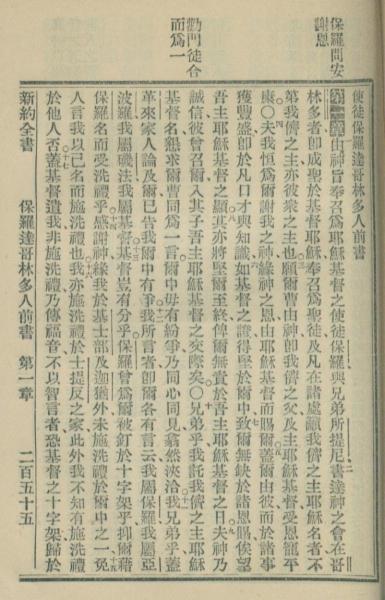 保羅問安
謝恩
勸門徒合
而爲一
使徒保羅達哥林多人前書
由神旨奉召爲耶穌基督之使徒保羅與兄弟所提尼書達神之會在哥
林多者即成聖於基督耶穌奉召爲聖徒及凡在諸處籲我儕之主耶穌名者不
第我儕之主亦彼衆之主也願爾曹由神即我儕之父及主耶穌基督受恩寵平
康○夫我恒爲爾謝我之神緣神之恩由耶穌基督而賜爾蓋爾由彼而於諸事
獲豐盛即於凡口才與知識如基督之證得堅於爾中致爾無缺於諸恩賜俟望
吾主耶穌基督之顯其亦將堅爾至終俾爾無責於吾主耶穌基督之日夫神乃
誠信彼曾召爾入其子吾主耶穌基督之交際矣○兄弟乎我託我儕之主耶穌
基督名懇求爾曹同爲一言爾中毋有紛爭乃同心同見翕然浹洽我兄弟乎蓋
革來家人論及爾已告我爾中有爭我所言者即爾各有言云我屬保羅我屬亞
波羅我屬磯法我屬基督基督豈有分乎保羅曾爲爾被釘於十字架乎抑爾藉
保羅名而受洗禮乎感謝神緣我於基士部及迦猶外未施洗禮於爾中之一免
人言我以己名而施洗禮也我亦施洗禮於士提反之家此外我不知有施洗禮
於他人否蓋基督遣我非施洗禮乃傳福音不以智言者恐基督之十字架歸於
新約全書 保羅達哥林多人前書 第一章 二百五十五